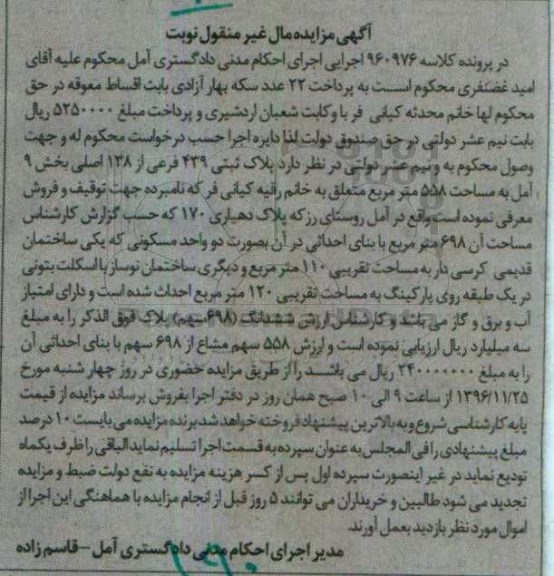 آگهی مزایده مال غیر منقول نوبت
در پرونده کلاسه ۹۶۰۹۷۶ اجرایی اجرای احکام مدنی دادگستری آمل محکوم علیه آقای
امید غضنفری محکوم است به پرداخت ۲۲ عدد سکه بهار آزادی بابت اقساط معوقه در حق
محکوم لها خانم محدثه کیانی فر با وکالت شعبان اردشیری و پرداخت مبلغ ۵۲۵۰۰۰۰ ریال
بابت نیم عشر دولتی در حق صندوق دولت لذا دایره اجرا حسب درخواست محکوم له و جهت
وصول محکوم به و نیم عشر دولتی در نظر دارد پلاک ثبتی ۴۳۹ فرعی از ۱۳۸ اصلی بخش ۹
آمل به مساحت ۵۵۸ متر مربع متعلق به خانم راقیه کیانی فر که نامبرده جهت توقیف و فروش
معرفی نموده است واقع در آمل روستای رزکه پلاک دهیاری ۱۷۰ که حسب گزارش کارشناس
مساحت آن ۶۹۸ متر مربع با بنای احداثی در آن بصورت دو واحد مسکونی که یکی ساختمان
قدیمی کرسی دار به مساحت تقریبی ۱۱۰ متر مربع و دیگری ساختمان نوساز با اسکلت بتونی
در یک طبقه روی پارکینگ به مساحت تقریبی ۱۲۰ متر مربع احداث شده است و دارای امتیاز
آب و برق و گاز می باشد و کارشناس ارزش ششدانگ (۶۹۸سهم) پلاک فوق الذکر را به مبلغ
سه میلیارد ریال ارزیابی نموده است و ارزش ۵۵۸ سهم مشاع از ۶۹۸ سهم با بنای احداثی آن
را به مبلغ ۲۴۰۰۰۰۰۰۰۰ ریال می باشد را از طریق مزایده حضوری در روز چهار شنبه مورخ
۱۳۹۶/۱۱/۲۵ از ساعت ۹ الی ۱۰ صبح همان روز در دفتر اجرا بفروش برساند مزایده از قیمت
پایه کارشناسی شروع و به بالاترین پیشنهاد فروخته خواهد شد برنده مزایده می بایست ۱۰ درصد
مبلغ پیشنهادی را فی المجلس به عنوان سپرده به قسمت اجرا تسلیم نماید الباقی را ظرف یکماه
تودیع نماید در غیر اینصورت سپرده اول پس از کسر هزینه مزایده به نفع دولت ضبط و مزایده
تجدید می شود طالبین و خریداران می توانند ۵ روز قبل از انجام مزایده با هماهنگی این اجرا از
اموال مورد نظر بازدید بعمل آورند.
مدیر اجرای احکام مدنی دادگستری آمل – قاسم زاده